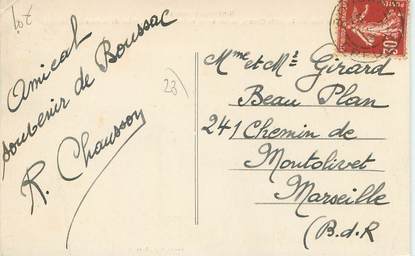 20f
Amical
souvenir de Boussac
R. Chausson
23)
Mme et Mr Girard
Beau Plan
241 Chemin de
Montolivet
Marseille
(B.d.R
POSTES
30c